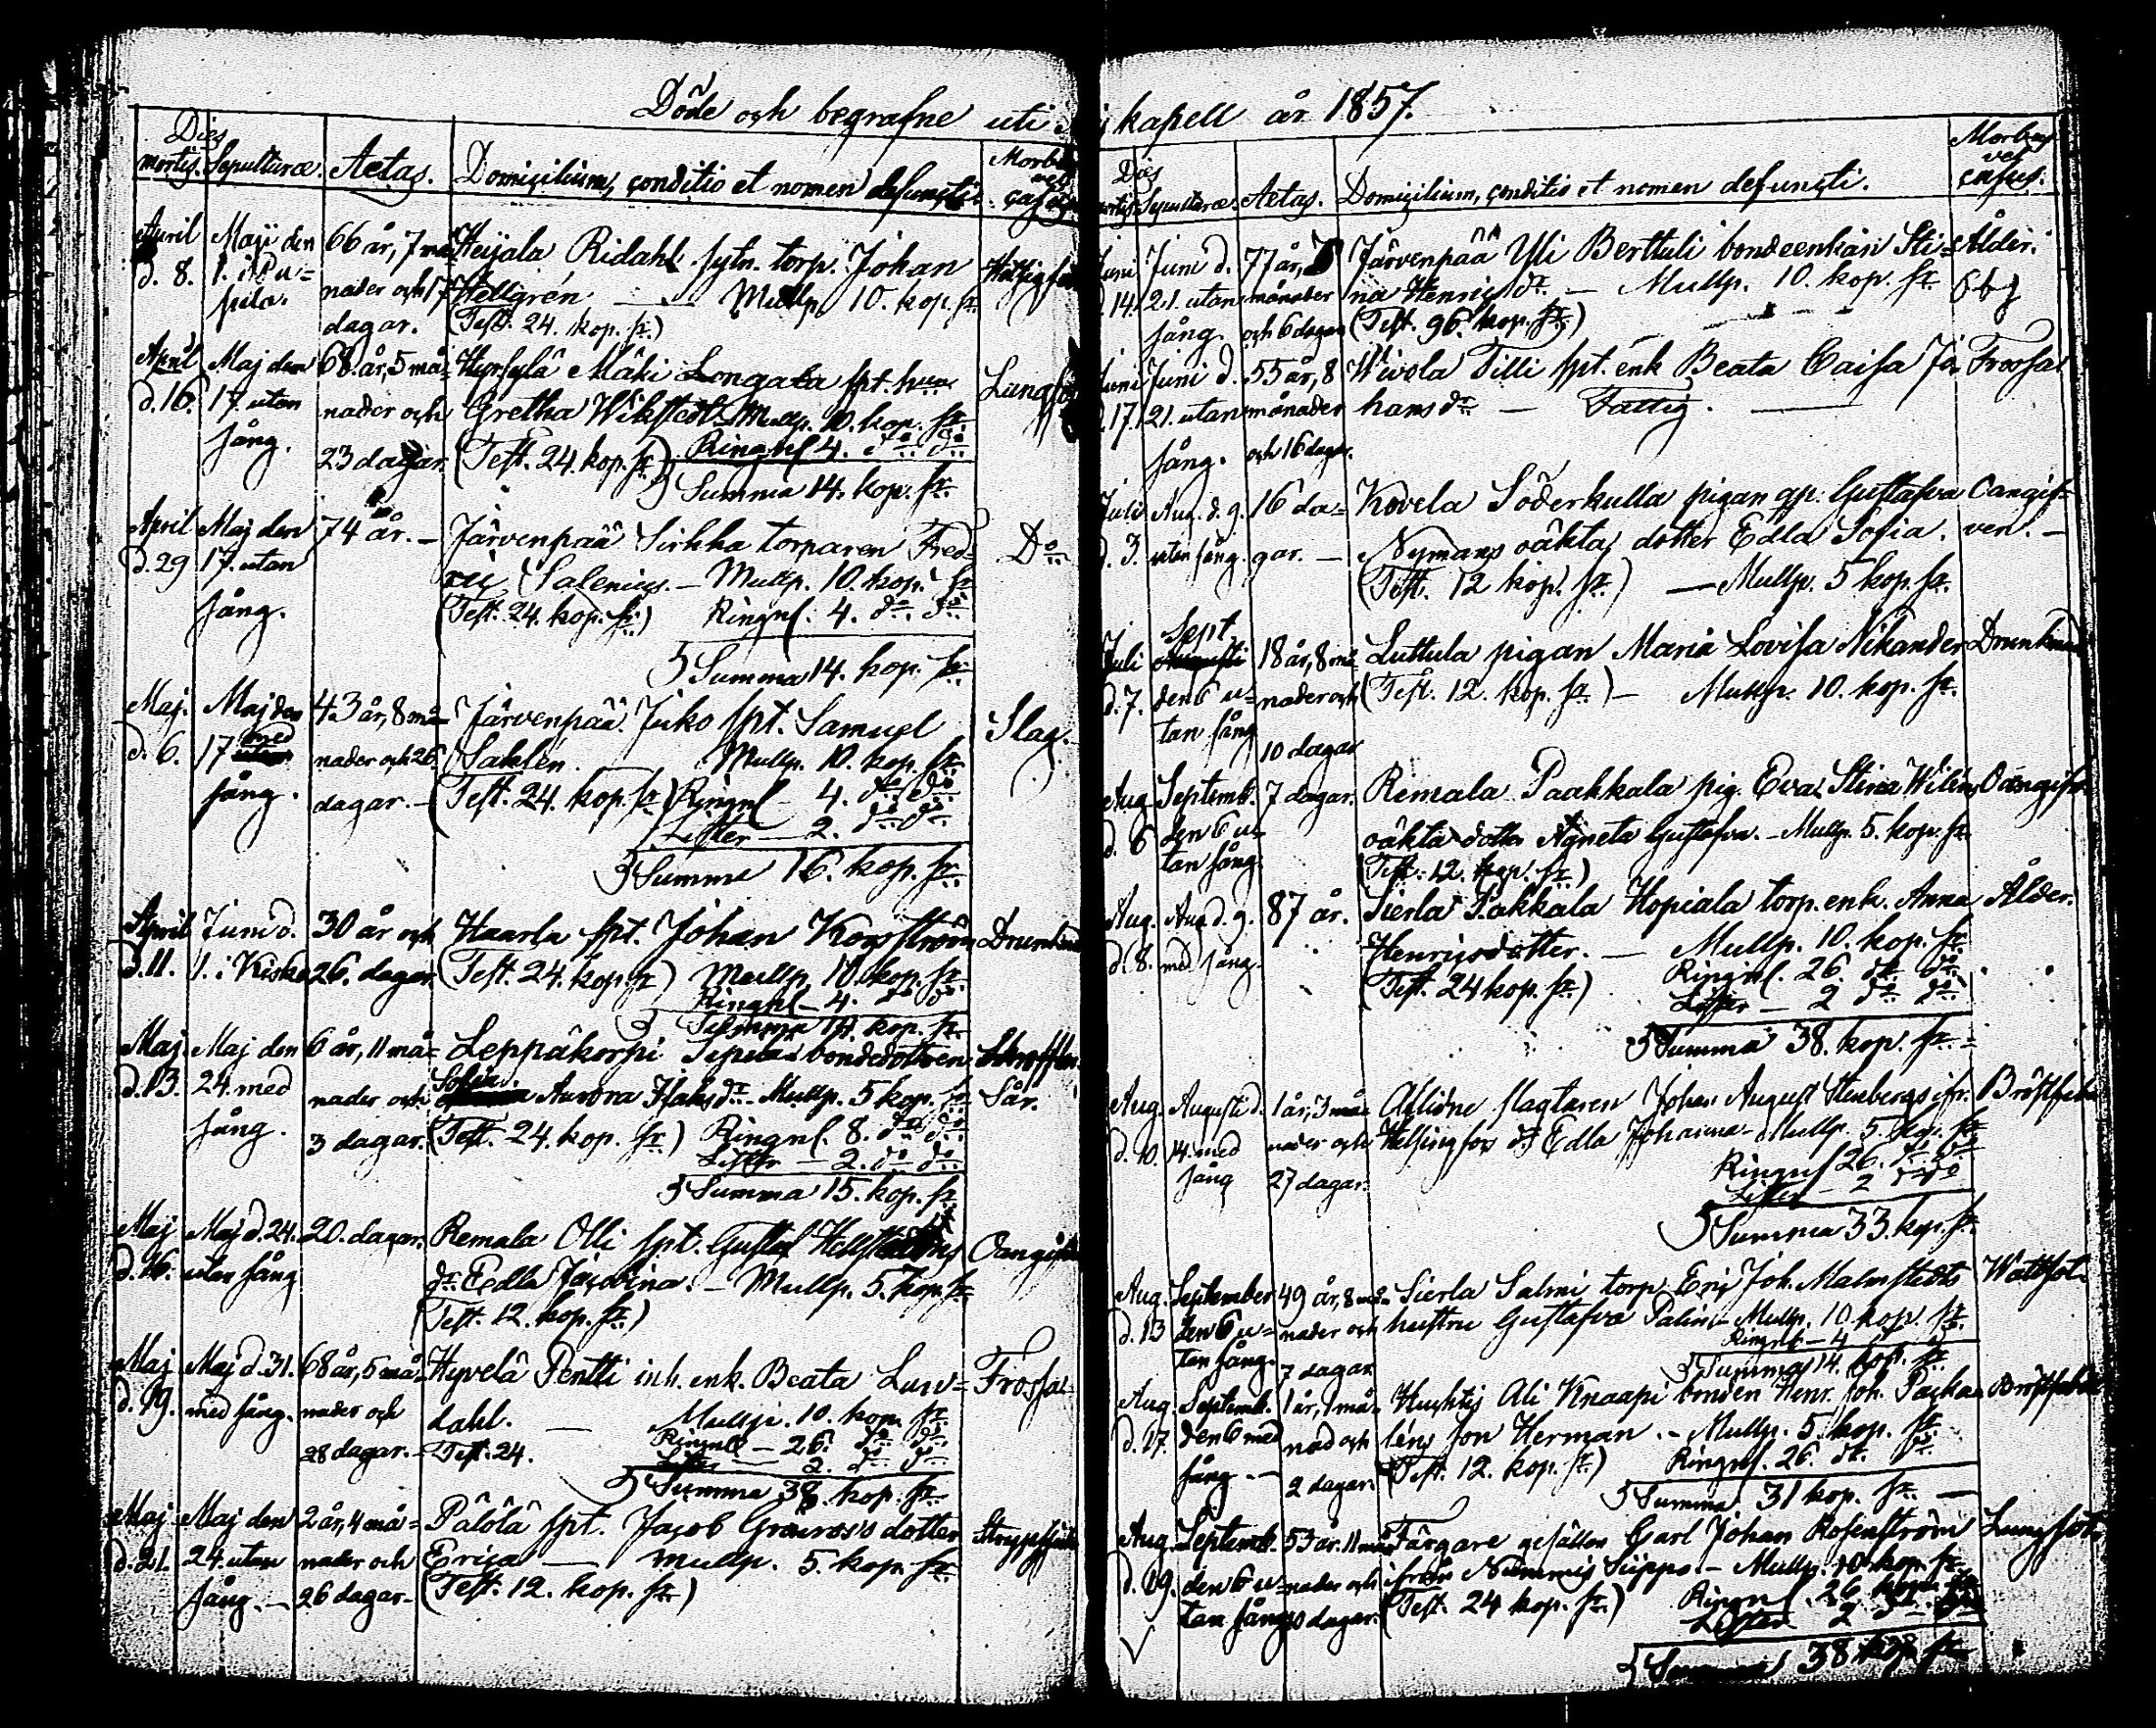 Döde och begrafne uti kapell år 1857.
Dies
mortis. Sepulturæ. Aetas. Domicilium, conditio et nomen defuncti. Morbus
vel
casus
April Maji den 66 år, 7 må Heijala Ridahl sytn. torp. Johan
d. 8. 1. i Pu= nader och 17 Hellgrén — Mullp. 10. kop. sr.
sula. dagar. (Test. 24. kop. sr.)
April Maj den 68 år, 5 må= Hyrsylä Mäki Longala spt. hu
d. 16. 17 utan nader och Gretha Wikstedt Mullp. 10. kop. sr. Lungsot
sång. 23 dagar. (Test. 24. kop. sr.) Ringnl 4. do do
Summa 14. kop. sr.
April Maj den 74 år. — Järvenpää Sirkka torparen Fred= Do
d. 29 17. utan ric Salenius. — Mullp. 10. kop. sr
sång. (Test. 24. kop. sr.) Ringnl. 4. do do
Summa 14. kop. sr.
Maj. Maj den 43 år, 8 må= Järvenpää Juko spt. Samuel Slag.
d. 6. 17 med nader och 26. Sahlén. Mullp. 10. kop. sr.
sång. dagar. — (Test. 24. kop. sr) Ringnl — 4. do do
Lifter — 2. do do
Summa 16. kop. sr.
April Juni d. 30 år och Haarla spt. Johan Korsström Drunknad
d. 11. 1. i Kisko 26. dagar (Test. 24. kop. sr) Mullp. 10. kop. sr.
Ringnl — 4. do do
Summa 14. kop. sr.
Maj. Maj den 6 år, 11 må= Leppäkorpi Sepelä bondedottren
d. 13. 24. med nader och Sofia Aurora Isaksdr. Mullp. 5 kop. sr Sår.
sång. 3 dagar. (Test. 24. kop. sr.) Ringnl. 8. do do
Lifter — 2. do do
Summa 15. kop. sr.
Maj Maj d. 24. 20. dagar. Remala Olli spt. Gustaf
d. 16. utan sång dr. Edla Jacobina. — Mullp. 5. kop. sr.
(Test. 12. kop. sr.)
Maj Maj d. 31. 68 år, 5 må= Hyvelä Pentti inh. enk. Beata Lun= Frossa
d. 19. med sång. nader och dahl. — Mullp. 10. kop. sr.
28 dagar. — Test. 24. Ringnl — 26. do do
Lifter 2. do do
Summa 38. kop. sr.
Maj Maj den 2 år, 4 må= Pälölä spt. Jacob Granros's dotter
d. 21. 24. utan nader och Erica — Mullp. 5. kop. sr.
sång. — 26 dagar — (Test. 12. kop. sr.)
Dies
Sepulturæ. Aetas. Domicilium, conditio et nomen defuncti. Morbus
vel
casus.
Juni Juni d. 77 år, 7 Järvenpää Yli Berttuli bondeenkan Sti= Ålder.
14. 21. utan månader na Henricsdr. — Mullp. 10. kop. sr
sång. och 6 dagar (Test. 96. kop. sr.)
Juni Juni d. 55 år, 8 Wivola Tilli spt. enk. Beata Caisa Jo= Frossa
17. 21. utan månader hans dr. — Fattig. —
sång. och 16 dagar.
Juli Aug. d. 9. 16 da= Kovela Söderkulla pigan Gustafva Oangif=
d. 3. utan sång. gar. — Nymans oäkta dotter Edla Sofia. ven. —
(Test. 12 kop. sr.) — Mullp. 5 kop. sr.
Sept
Juli 18 år, 8 må= Luttula pigan Maria Lovisa Nikander Drunknad
d. 7. den 6 u= nader och (Test. 12. kop. sr.) — Mullp. 10. kop. sr.
tan sång 10 dagar
Aug. Septemb. 7 dagar. Remala Paakkala pig. Eva Stina Wiléns
d. 6 den 6 u= oäkta dotter Agneta Gustafva. — Mullp. 5. kop. sr.
tan sång. (Test. 12. kop. sr.)
Aug. Aug d. 9. 87 år. Sierla Pakkala Hopiala torp. enk. Anna Ålder.
d. 8. med sång. Henricsdotter. — Mullp. 10. kop. sr.
(Test. 24 kop. sr.) Ringnl. 26. do do
Lifter — 2 do do
Summa 38. kop. sr.
Aug. Augusti d. 1 år, 3 må= Aflidne slagtaren Johan August Stenbergs ifr. Bröstfeber
d. 10. 14. med nader och Helsingfors dr Edla Johanna — Mullp. 5. kop. sr.
sång 27 dagar. Ringnl 26. do do
Lifter — 2 do do
Summa 33. kop. sr.
Aug. September 49 år, 8 må= Sierla Salmi torp. Eric Joh. Malmstedts Wattsot.
d. 13 den 6 u= nader och hustru Gustafva Palin — Mullp. 10 kop. sr.
tan sång. 7 dagar Ringnl — 4
Summa 14. kop. sr.
Aug. Septemb. 1 år, 1 må= Huhtis Ali Knaapi bonden Henr. Joh. Bröstfeber
d. 17. den 6 med nad och léns son Herman. — Mullp. 5. kop. sr.
sång — 2 dagar. (Test. 12. kop. sr.) Ringnl. 26. do. do.
Summa 31 kop. sr. —
Aug. Septemb. 53 år. 11 må Färgare gesällen Carl Johan Rosenström Lungsot.
d. 19. den 6 u= nader och ifrån Nummis Siippo. — Mullp. 10 kop. sr.
tan sång dagar. (Test. 24 kop. sr.) Ringnl. 26 kop. sr.
Lifter 2 do
Summa 38 kop sr